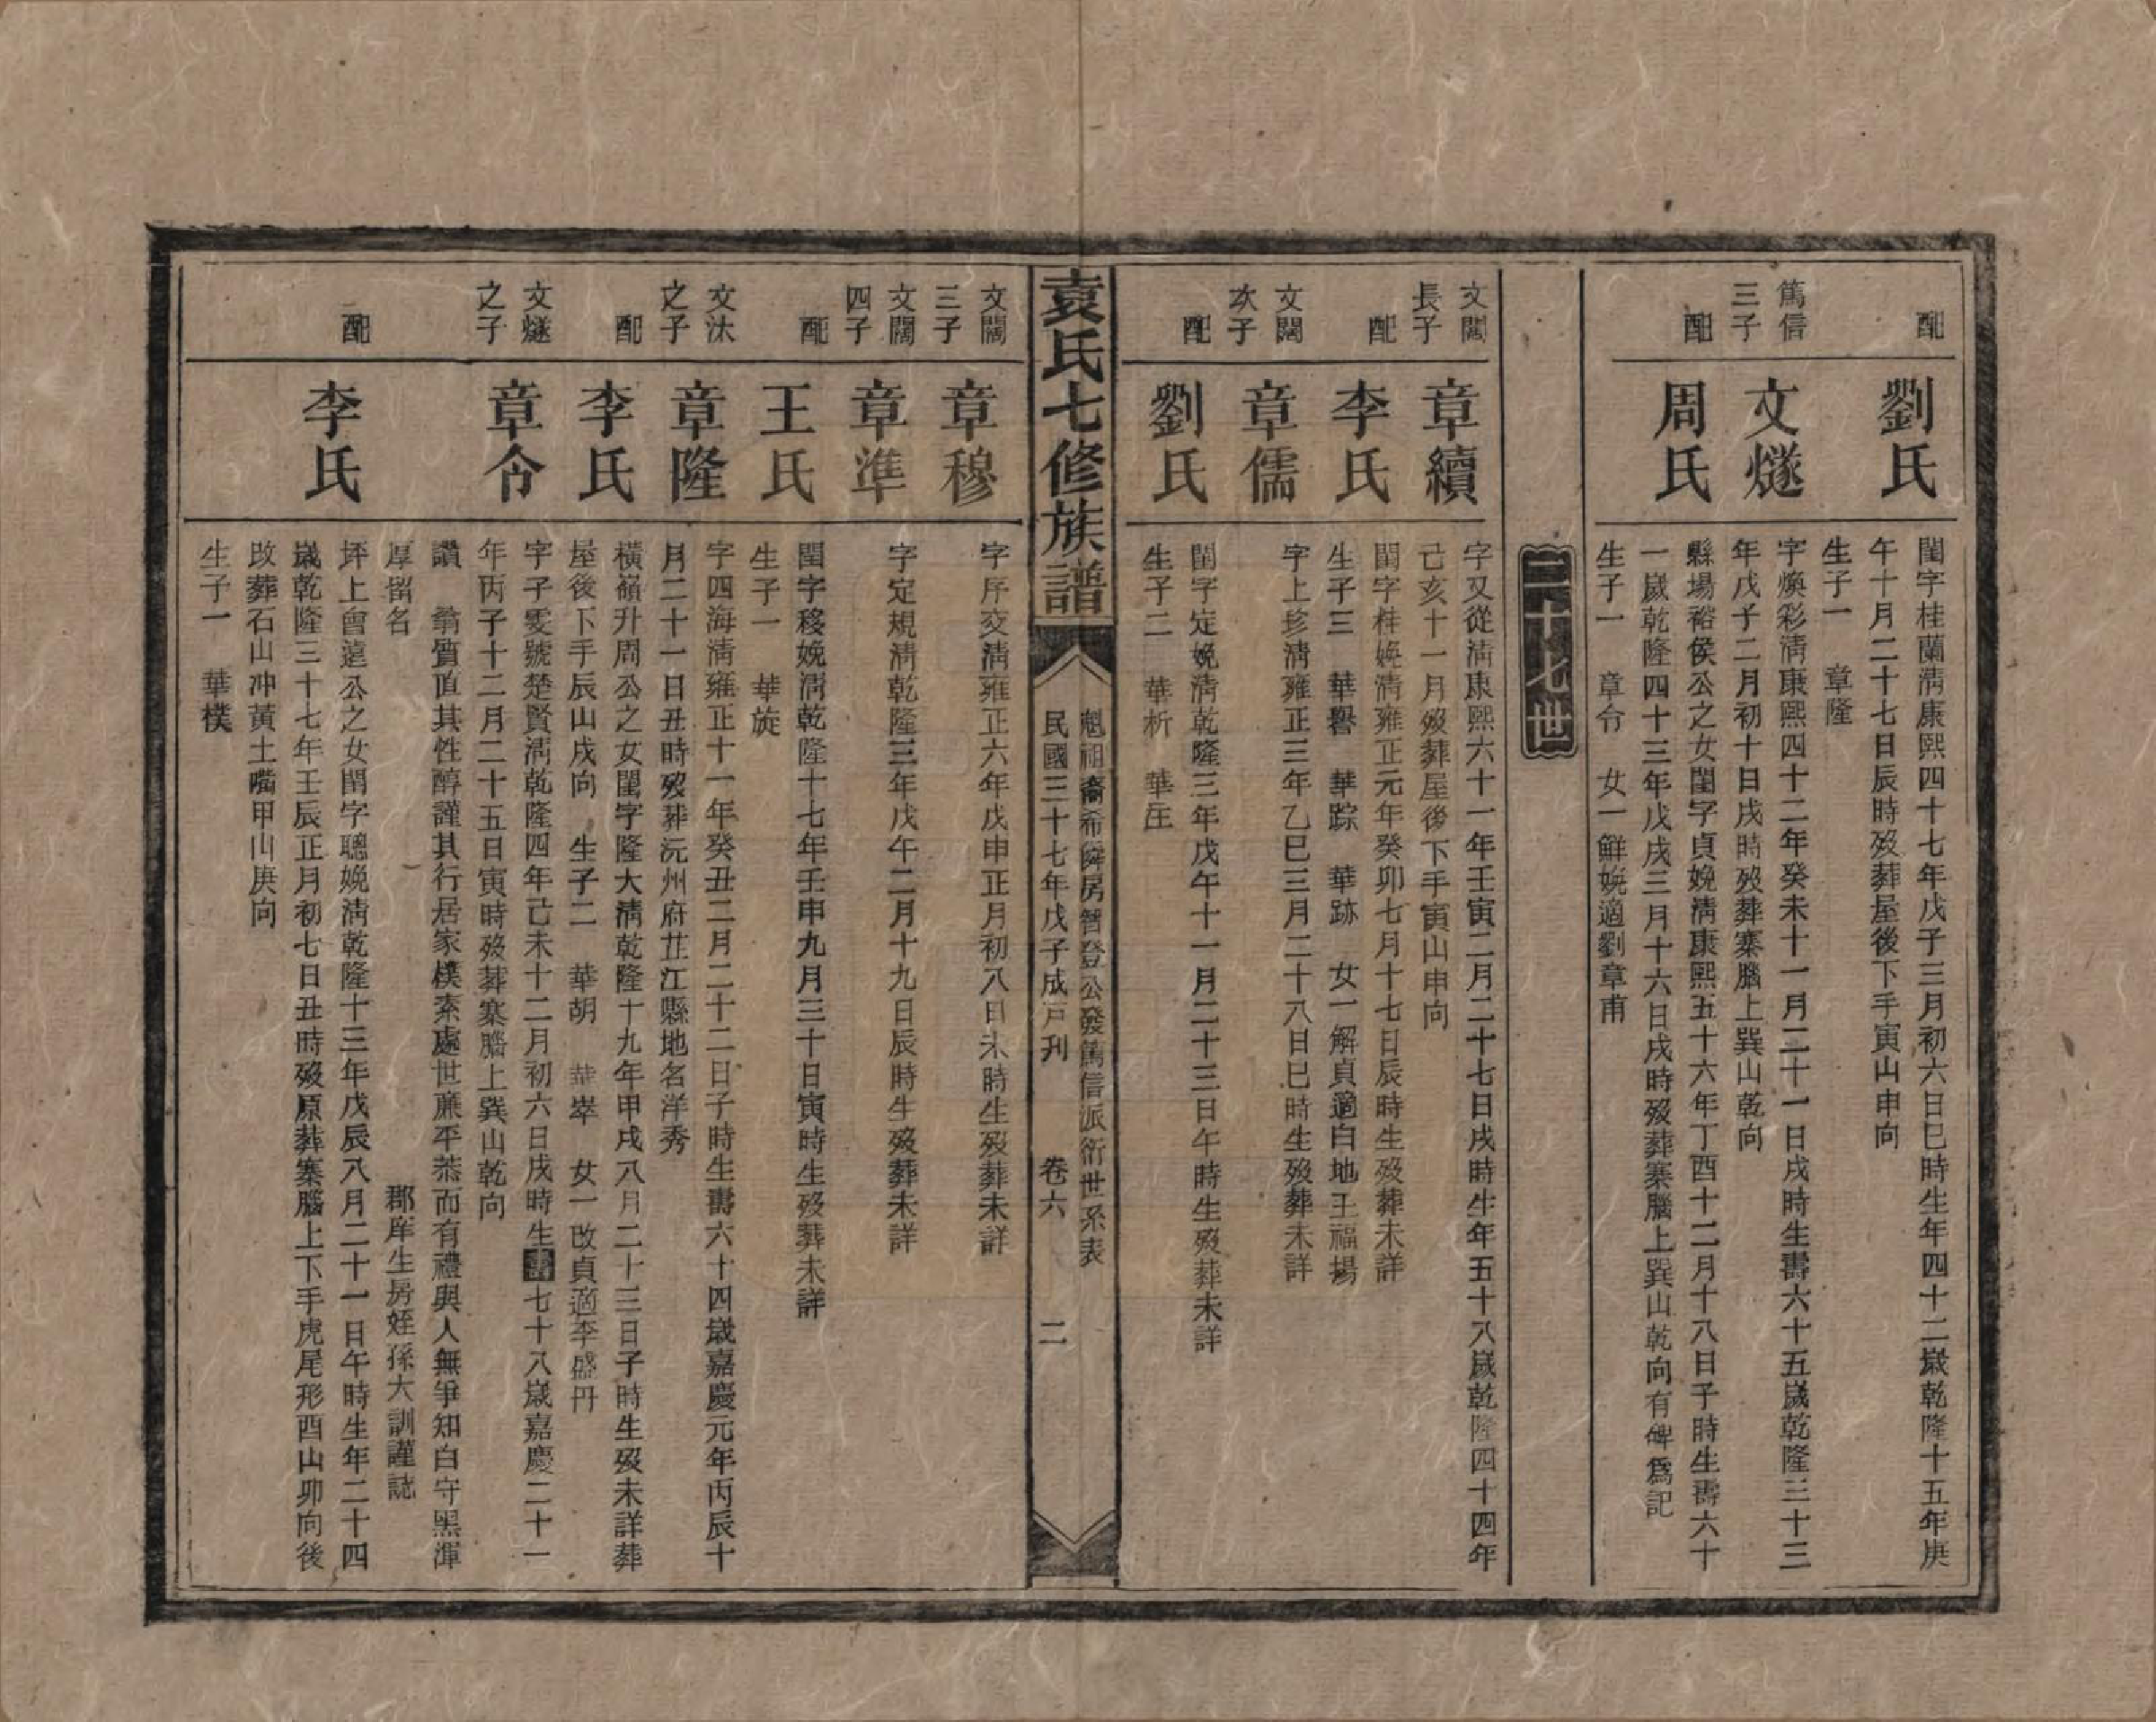 配
劉氏
閨字桂蘭清康熙四十七年戊子三月初六日巳時生年四十二歲乾隆十五年庚
午十月二十七日辰時歿葬屋後下手寅山申向
生子一　章隆
篤信
三子
文燧
字煥彩清康熙四十二年癸未十一月二十一日戌時生壽六十五歲乾隆三十三
年戊子二月初十日戌時歿葬寨腦上巽山乾向
配
周氏
縣場裕侯公之女閨字貞娩清康熙五十六年丁酉十二月十八日子時生壽六十
一歲乾隆四十三年戊戌三月十六日戌時歿葬寨腦上巽山乾向有碑爲記
生子一　章令　女一鮮娩適劉章甫
二十七世
文闊
長子
章續
字又從清康熙六十一年壬寅二月二十七日戌時生年五十八歲乾隆四十四年
己亥十一月歿葬屋後下手寅山申向
配
李氏
閨字桂娩清雍正元年癸卯七月十七日辰時生歿葬未詳
生子三　華譽　華踪　華跡　女一解貞適白地王福揚
文闊
次子
章儒
字上珍清雍正三年乙巳三月二十八日巳時生歿葬未詳
配
劉氏
閨字定娩清乾隆三年戊午十一月二十三日午時生歿葬未詳
生子二　華析　華在
袁氏七修族譜
魁祖裔希舜房晉登公發篤信派衍世系表
民國三十七年戊子成戶刋
卷六
二
文闊
三子
章穆
字序交清雍正六年戊申正月初八日未時生歿葬未詳
文闊
四子
章準
字定規清乾隆三年戊午二月十九日辰時生歿葬未詳
配
王氏
閨字移娩清乾隆十七年壬申九月三十日寅時生歿葬未詳
生子一　華旋
文汰
之子
章隆
字四海清雍正十一年癸丑二月二十二日子時生壽六十四歲嘉慶元年丙辰十
月二十一日丑時歿葬沅州府芷江縣地名洋秀
配
李氏
橫嶺升周公之女閨字隆大清乾隆十九年甲戌八月二十三日子時生歿未詳葬
屋後下手辰山戌向　生子二　華胡　華崒　女一改貞適李盛丹
文燧
之子
章令
字子雯號楚賢清乾隆四年己未十二月初六日戌時生壽七十八歲嘉慶二十一
年丙子十二月二十五日寅時歿葬寨腦上巽山乾向
讚　翁質直其性醇謹其行居家樸素處世廉平恭而有禮與人無爭知白守黑渾
厚留名　郡庠生房姪孫大訓謹誌
配
李氏
坪上會遠公之女閨字聰娩清乾隆十三年戊辰八月二十一日午時生年二十四
歲乾隆三十七年壬辰正月初七日丑時歿原葬寨腦上下手虎尾形酉山卯向後
改葬石山冲黃土嘴甲山庚向
生子一　華樸